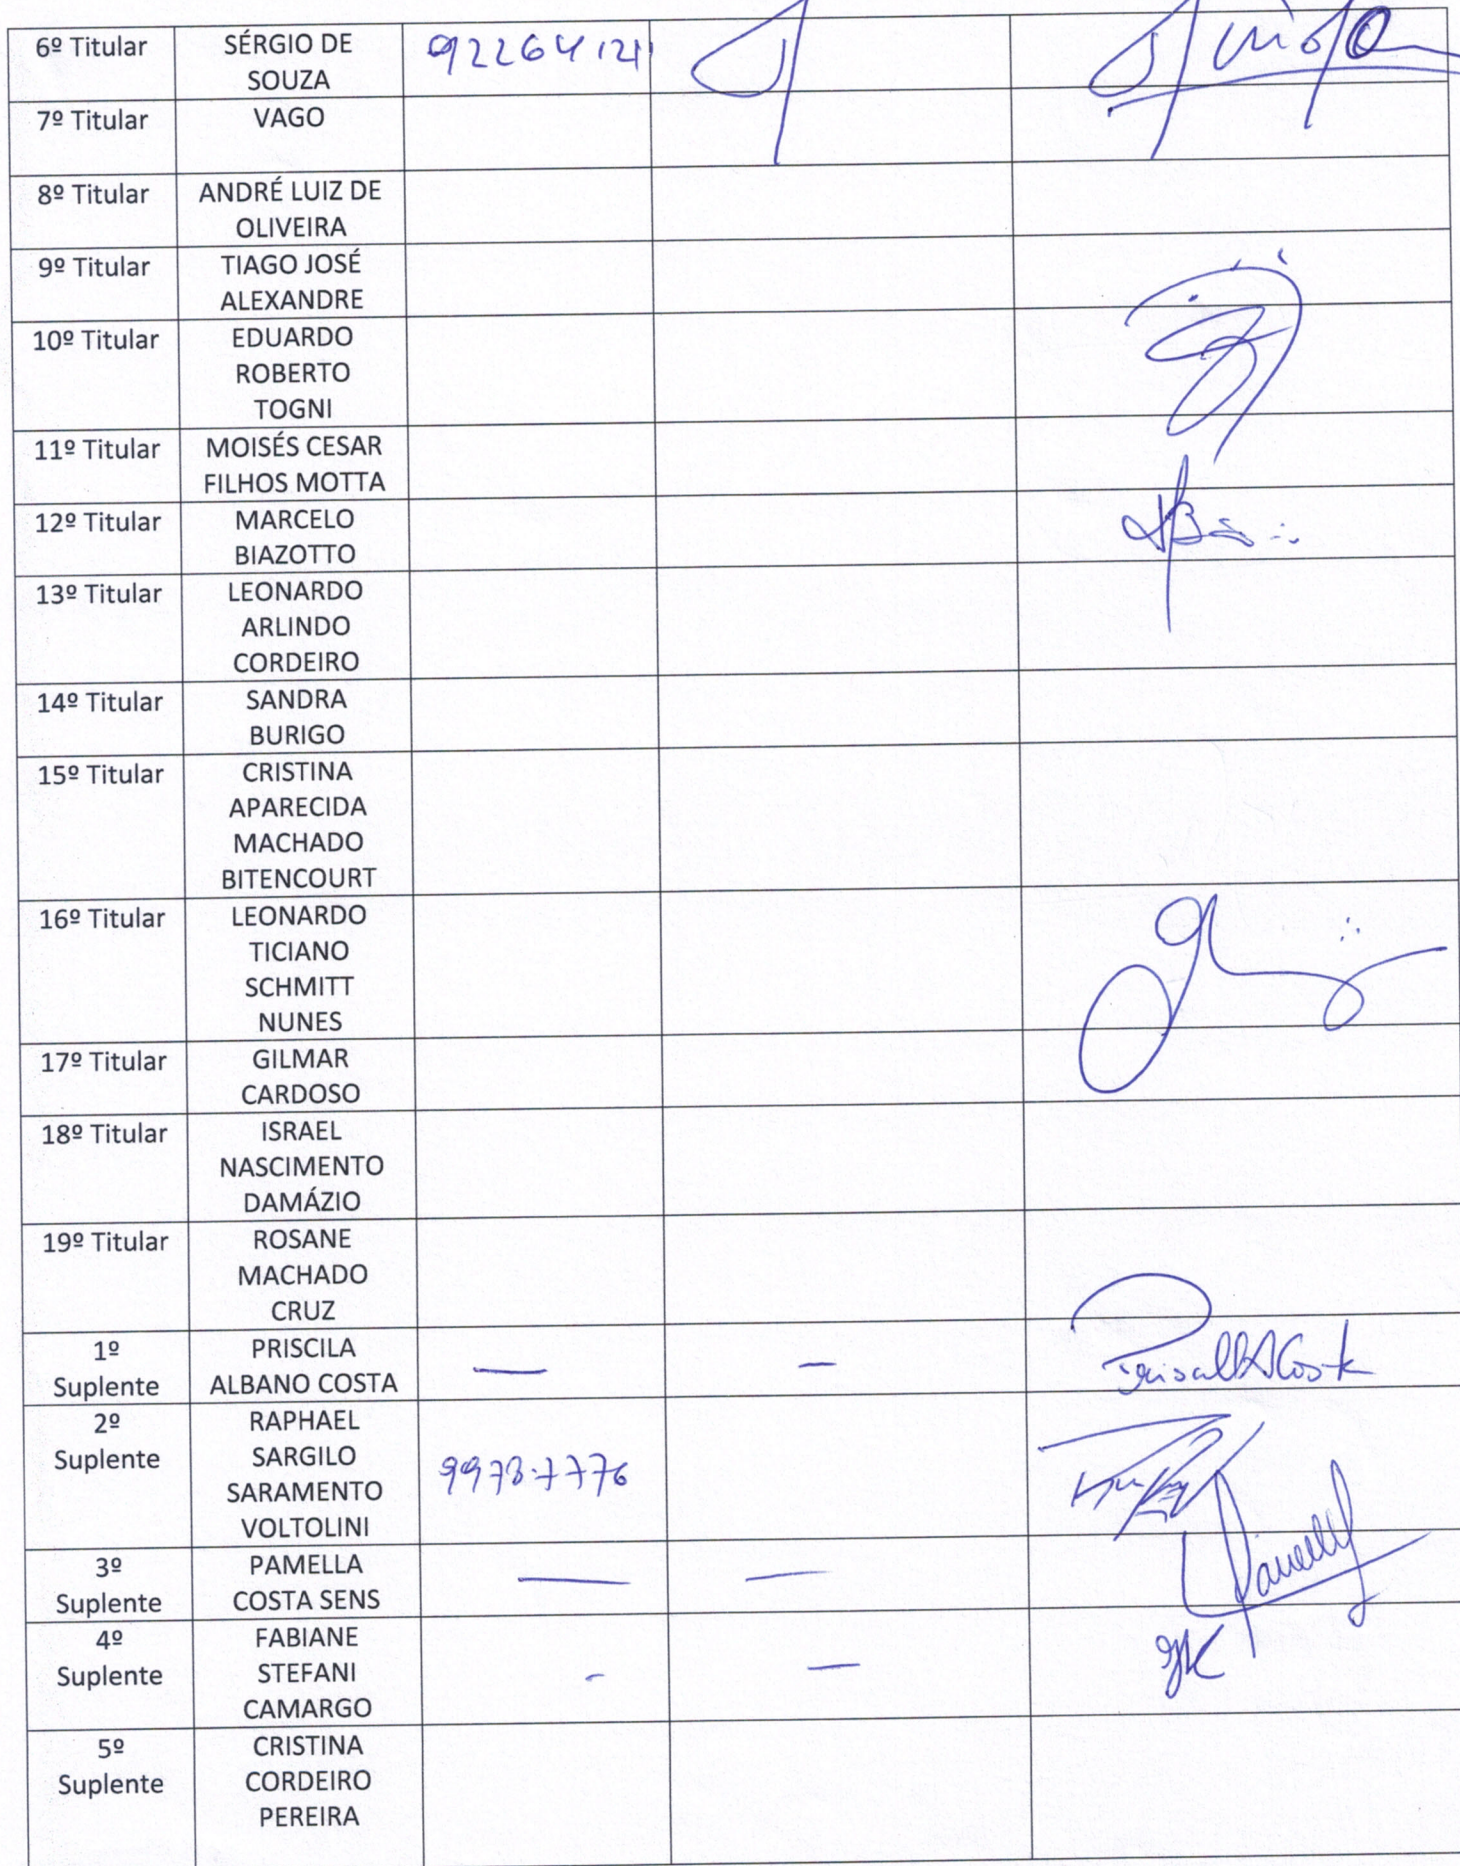 6º Titular
SÉRGIO DE
SOUZA
92264121
7º Titular
VAGO
8º Titular
ANDRÉ LUIZ DE
OLIVEIRA
9º Titular
TIAGO JOSÉ
ALEXANDRE
10º Titular
EDUARDO
ROBERTO
TOGNI
11º Titular
MOISÉS CESAR
FILHOS MOTTA
12º Titular
MARCELO
BIAZOTTO
13º Titular
LEONARDO
ARLINDO
CORDEIRO
14º Titular
SANDRA
BURIGO
15º Titular
CRISTINA
APARECIDA
MACHADO
BITENCOURT
16º Titular
LEONARDO
TICIANO
SCHMITT
NUNES
17º Titular
GILMAR
CARDOSO
18º Titular
ISRAEL
NASCIMENTO
DAMÁZIO
19º Titular
ROSANE
MACHADO
CRUZ
1º
Suplente
PRISCILA
ALBANO COSTA
— —
2º
Suplente
RAPHAEL
SARGILO
SARAMENTO
VOLTOLINI
9973.7776
3º
Suplente
PAMELLA
COSTA SENS
— —
4º
Suplente
FABIANE
STEFANI
CAMARGO
- —
5º
Suplente
CRISTINA
CORDEIRO
PEREIRA